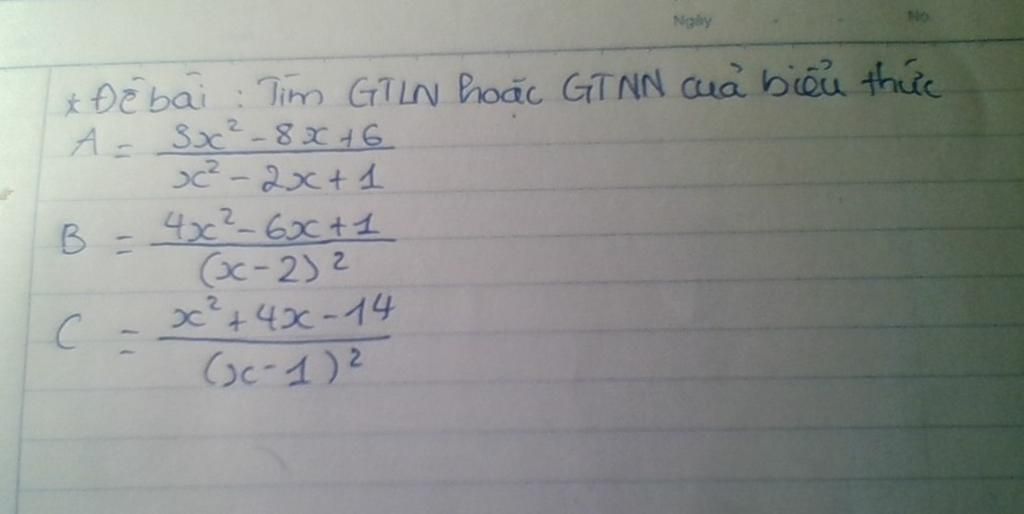 Ngày No.
* Đề bài : Tìm GTLN hoặc GTNN của biểu thức
A = \frac{3x² - 8x + 6}{x² - 2x + 1}
B = \frac{4x² - 6x + 1}{(x - 2)²}
C = \frac{x² + 4x - 14}{(x - 1)²}